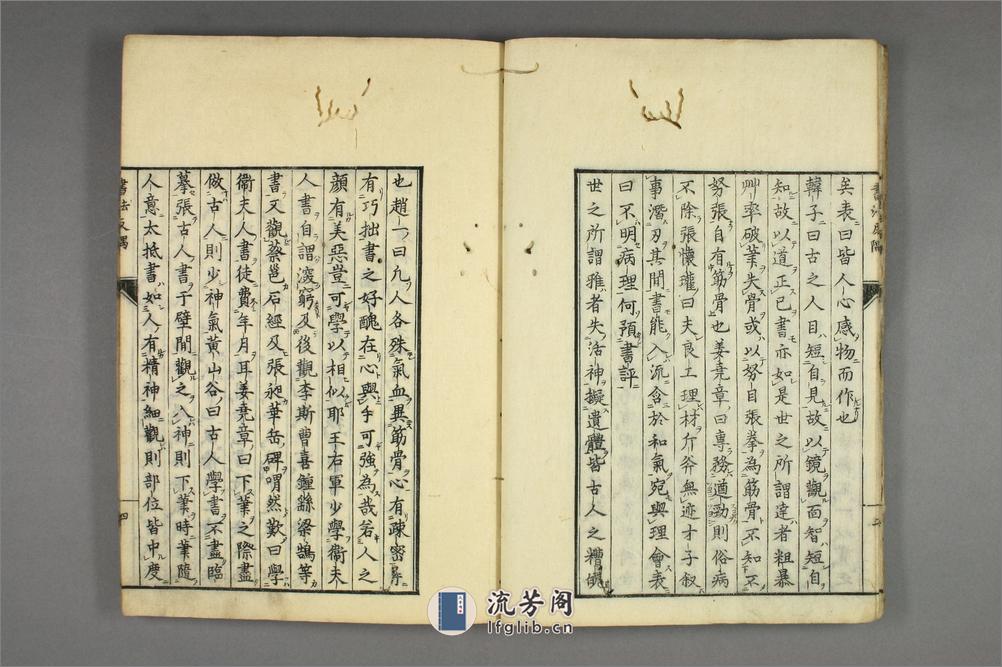 矣表曰皆人心感物而作也
韓子曰古之人目短自見故以鏡觀面智短自
知故以道正已書亦如是世之所謂達者粗暴
艸率破業失骨或以努自張拳為筋骨不知不
努張自有筋骨也姜堯章曰專務遒勁則俗病
不除張懷瓘曰夫良工理材斤斧無迹才子叙
事潛刃其間書能入流含於和氣宛與理會表
曰不明病理何預書評
世之所謂雅者失活神擬遺體皆古人之糟
也趙一曰凢人各殊氣血異筋骨心有疎密
有巧拙書之好醜在心與手可強為哉若人之
顔有美惡豈可學以相似耶王右軍少學衛夫
人書自謂窮及後觀李斯曹喜鍾繇梁鵠等
書又觀蔡邕石經及張昶華岳碑喟然歎曰學
衛夫人書徒費年月耳姜堯章曰下筆之際盡
倣古人則少神氣黄山谷曰古人學書不盡臨
摹張古人書于壁間觀之入神則下筆時筆隨
人意太抵書如人有精神細觀則部位皆中度
書法
流芳阁
lfglib.cn